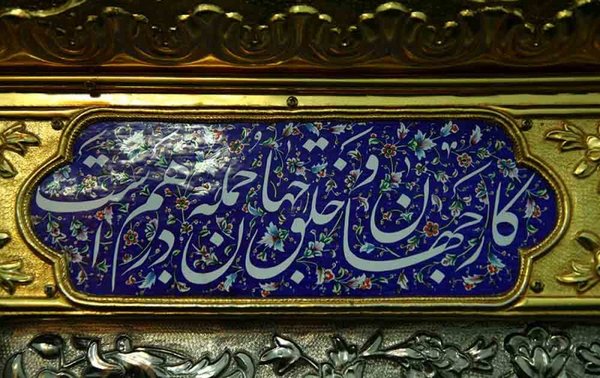 کار جهان و خلق جهان جمله درهم است